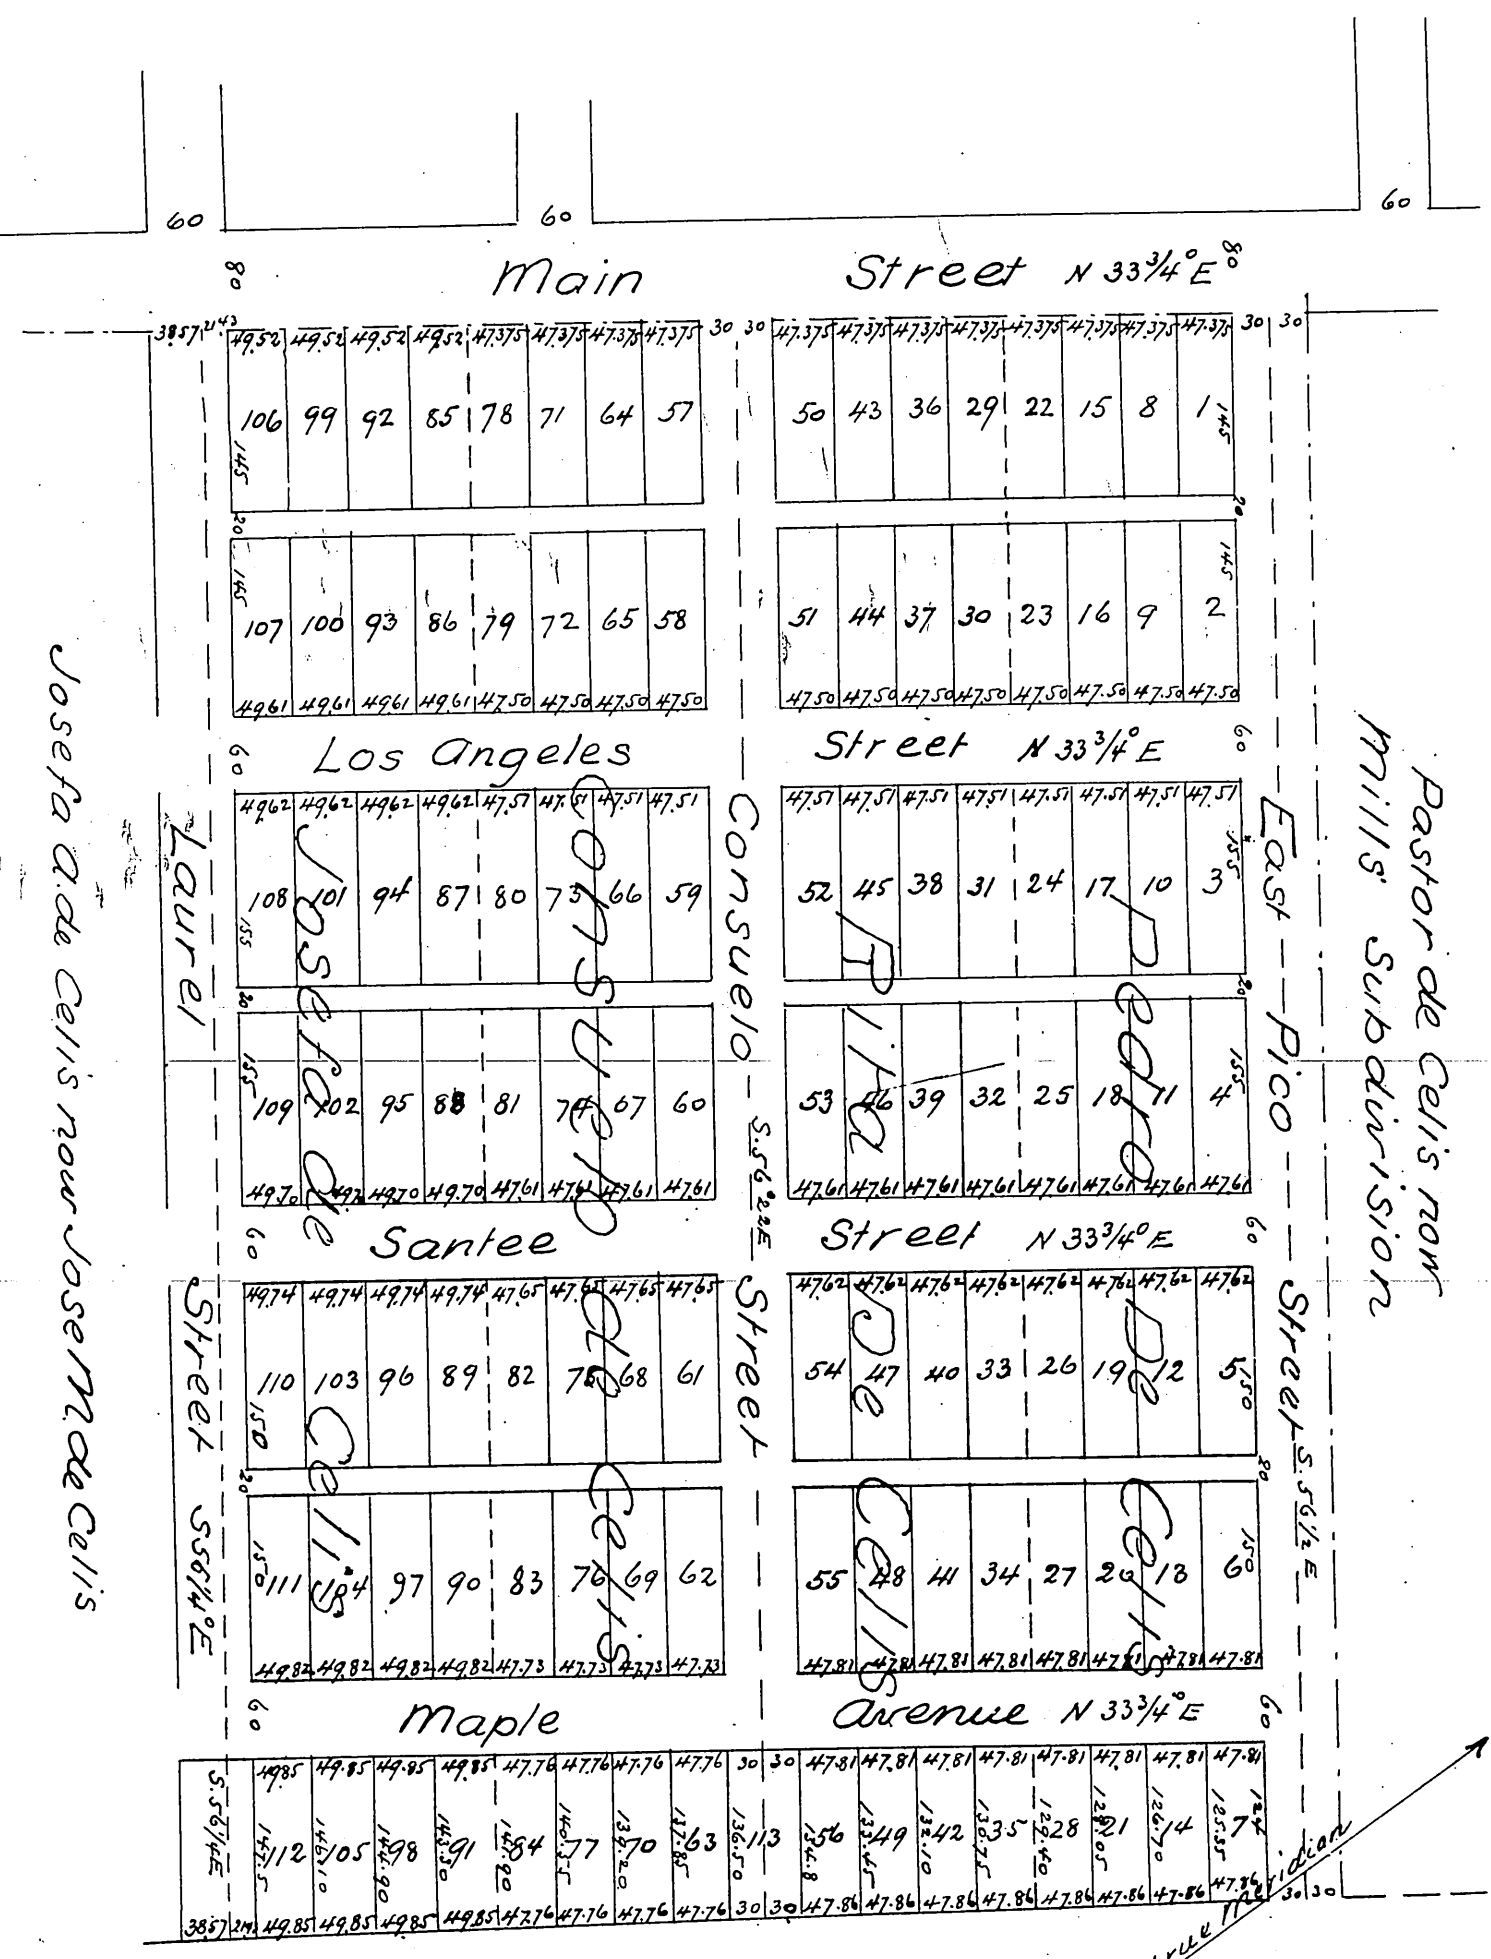 60 60 60
80 Main Street N 33¾° E 80
38.57 21.43 49.52 49.52 49.52 49.52 47.375 47.375 47.375 47.375 30 30 47.375 47.375 47.375 47.375 47.375 47.375 47.375 47.375 30 30
106 99 92 85 78 71 64 57 50 43 36 29 22 15 8 1
145 145
20 20
145 145
107 100 93 86 79 72 65 58 51 44 37 30 23 16 9 2
49.61 49.61 49.61 49.61 47.50 47.50 47.50 47.50 47.50 47.50 47.50 47.50 47.50 47.50 47.50 47.50
60 Los Angeles Street N 33¾° E 60
49.62 49.62 49.62 49.62 47.51 47.51 47.51 47.51 47.51 47.51 47.51 47.51 47.51 47.51 47.51 47.51
108 101 94 87 80 73 66 59 52 45 38 31 24 17 10 3
155 155
20 20
155 155
109 102 95 88 81 74 67 60 53 46 39 32 25 18 11 4
49.70 49.70 49.70 49.70 47.61 47.61 47.61 47.61 47.61 47.61 47.61 47.61 47.61 47.61 47.61 47.61
60 Santee Street N 33¾° E 60
49.74 49.74 49.74 49.74 47.65 47.65 47.65 47.65 47.62 47.62 47.62 47.62 47.62 47.62 47.62 47.62
110 103 96 89 82 75 68 61 54 47 40 33 26 19 12 5
150 150
20 20
150 150
111 104 97 90 83 76 69 62 55 48 41 34 27 20 13 6
49.82 49.82 49.82 49.82 47.73 47.73 47.73 47.73 47.81 47.81 47.81 47.81 47.81 47.81 47.81 47.81
60 Maple Avenue N 33¾° E 60
49.85 49.85 49.85 49.85 47.76 47.76 47.76 47.76 30 30 47.81 47.81 47.81 47.81 47.81 47.81 47.81 47.81
112 105 98 91 84 77 70 63 113 56 49 42 35 28 21 14 7
146.10 144.90 139.20 137.85 136.50 134.8 133.45 132.10 130.75 129.40 128.05 126.70 125.35 124
38.57 49.85 49.85 49.85 49.85 47.76 47.76 47.76 47.76 30 30 47.86 47.86 47.86 47.86 47.86 47.86 47.86 47.86 30 30
Josefa A. de Celis now Jose M. de Celis
Laurel Street S56¼°E
S.56¼E
Josefa de Celis
Consuelo de Celis
Consuelo Street S.56°22E
Rita De Celis
Pedro De Celis
East Pico Street S.56½E
Pastor de Celis now
Mills' Subdivision
True Meridian